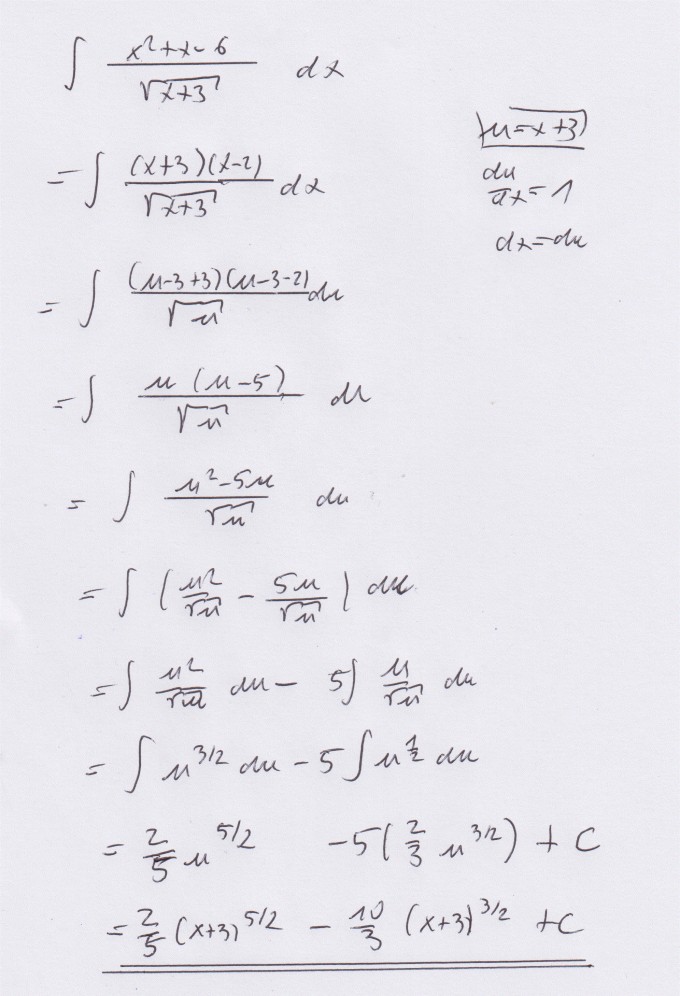 ∫ (x²+x-6)/√(x+3) dx
u=x+3
= ∫ ((x+3)(x-2))/√(x+3) dx
du/dx=1
dx=du
= ∫ ((u-3+3)(u-3-2))/√u du
= ∫ (u(u-5))/√u du
= ∫ (u²-5u)/√u du
= ∫ (u²/√u - 5u/√u) du
= ∫ u²/√u du - 5∫ u/√u du
= ∫ u^(3/2) du - 5∫ u^(1/2) du
= 2/5 u^(5/2) -5(2/3 u^(3/2)) + C
= 2/5 (x+3)^(5/2) - 10/3 (x+3)^(3/2) + C